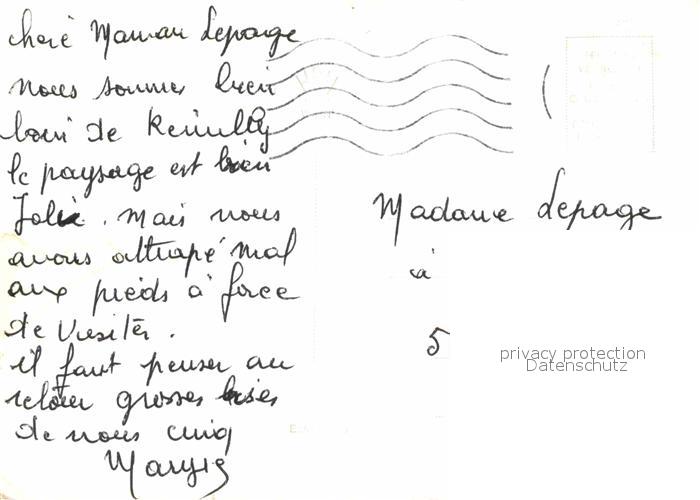 cheré Maman Lepage
nous sommes bien
loin de Reuilly
le paysage est bien
Jolie. mais nous
avons attrapé mal
aux pieds à force
de visiter.
il faut penser au
retour grosses bises
de nous cinq
Maryse
Madame Lepage
à
5
privacy protection
Datenschutz